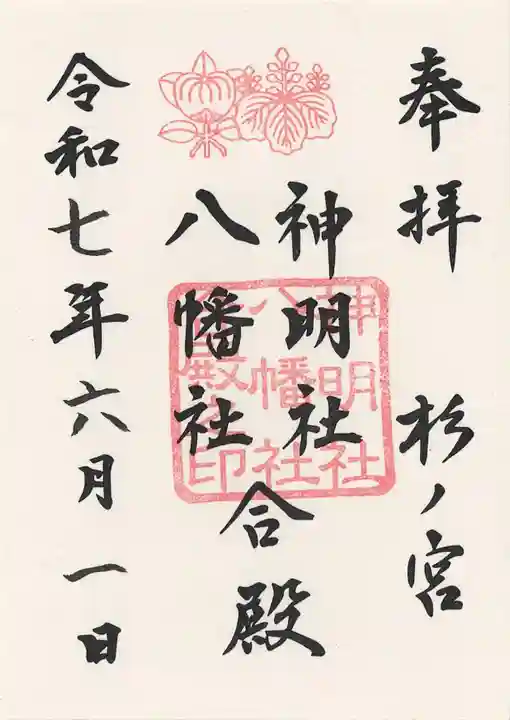 奉拝 杉ノ宮
神明社
八幡社
合殿
神明社
八幡社
合殿之印
令和七年六月一日